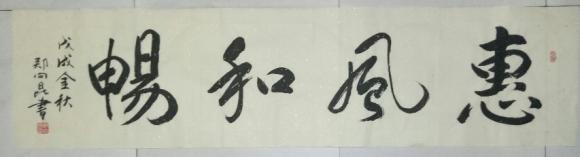 惠風和暢
戊戌金秋
郑向昆書